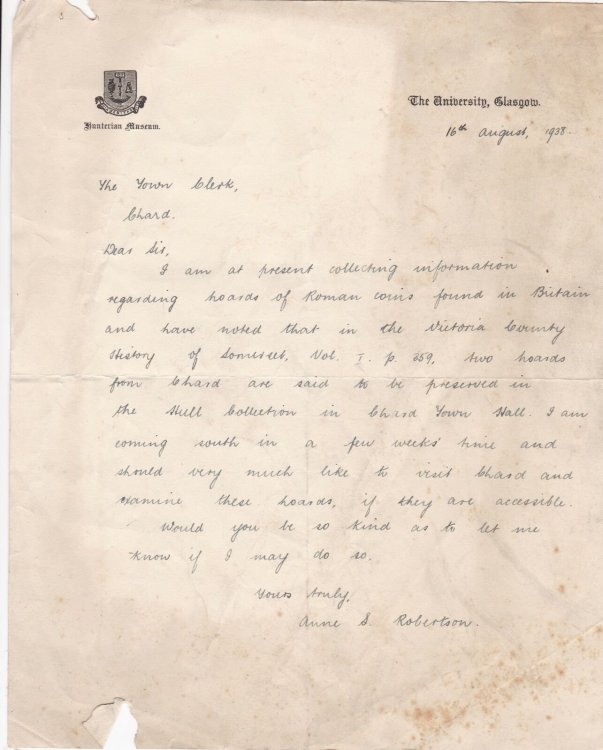 Hunterian Museum.
The University, Glasgow.
16th August, 1938.
The Town Clerk,
Chard.
Dear Sir,
I am at present collecting information
regarding hoards of Roman coins found in Britain
and have noted that in the Victoria County
History of Somerset, Vol. I. p. 359, two hoards
from Chard are said to be preserved in
the Hull Collection in Chard Town Hall. I am
coming south in a few weeks' time and
should very much like to visit Chard and
examine these hoards, if they are accessible.
Would you be so kind as to let me
know if I may do so.
Yours truly,
Anne S. Robertson.